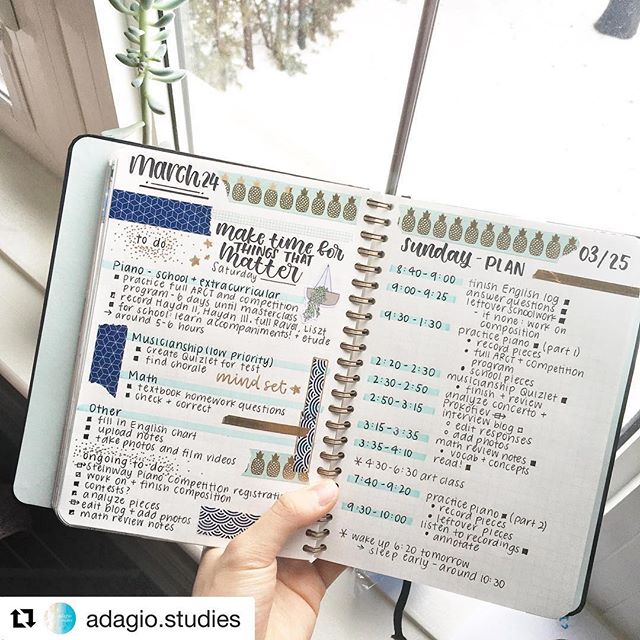 March 24
to do
make time for
THINGS THAT
matter
Saturday
Piano - school + extracurricular
practice full ARCT and competition
program - 6 days until masterclass
record Haydn II, Haydn III, full Ravel, Liszt
→ for school: learn accompaniments! + etude
around 5-6 hours
Musicianship (low priority)
create Quizlet for test
find chorale
mindset
Math
textbook homework questions
check + correct
Other
fill in English chart
upload notes
take photos and film videos
ongoing to-do
steinway piano competition registration
work on + finish composition
contests?
analyze pieces
edit blog + add photos
math review notes
sunday - PLAN
03/25
8:40-9:00
finish English log
9:00-9:25
answer questions
leftover schoolwork
• if none: work on
composition
9:30-1:30
practice piano (part 1)
• record pieces
• full ARCT + competition
program
• school pieces
2:20-2:30
musicianship Quizlet
• finish + review
2:30-2:50
analyze concerto +
Prokofiev
2:50-3:15
interview blog
• edit responses
• add photos
3:15-3:35
math review notes
• vocab + concepts
3:35-4:10
read!
* 4:30-6:30 art class
7:40-9:20
practice piano (part 2)
• record pieces
• leftover pieces
9:30-10:00
listen to recordings
• annotate
* wake up 6:20 tomorrow
→ sleep early - around 10:30
adagio.studies